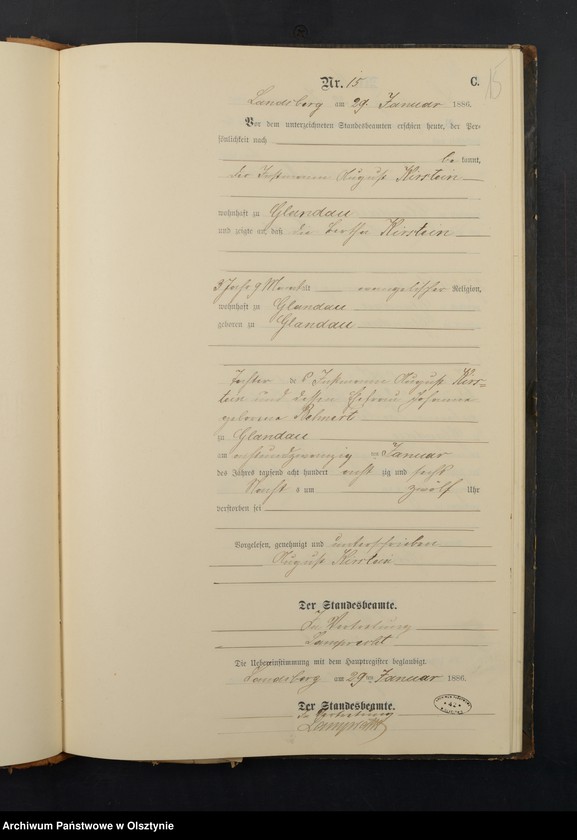 Nr. 15
C.
15
Landsberg am 29 Januar 1886.
Vor dem unterzeichneten Standesbeamten erschien heute, der Per-
sönlichkeit nach
be kannt,
der Instmann August Kirstein
wohnhaft zu Glandau
und zeigte an, daß die Bertha Kirstein
3 Jahr 9 Monat alt evangelischer Religion,
wohnhaft zu Glandau
geboren zu Glandau
Tochter des Instmann August Kirs-
tein und dessen Ehefrau Johanna
geborene
zu Glandau
am achtundzwanzig ten Januar
des Jahres tausend acht hundert acht zig und sechs
Nachts um zwölf Uhr
verstorben sei
Vorgelesen, genehmigt und unterschrieben
August Kirstein
Der Standesbeamte.
In Vertretung
Lamprecht
Die Uebereinstimmung mit dem Hauptregister beglaubigt.
Landsberg am 29 ten Januar 1886.
Der Standesbeamte.
In Vertretung
Lamprecht
* 42 *
Archiwum Państwowe w Olsztynie